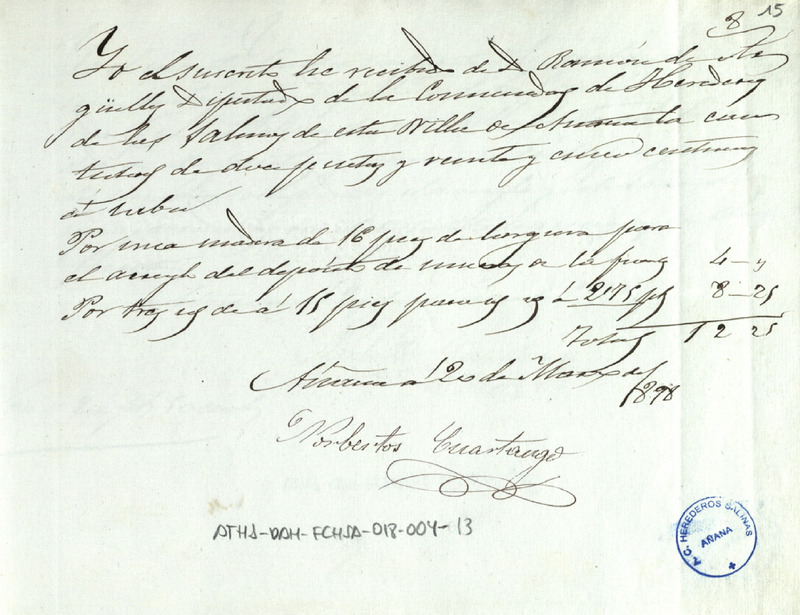 8 15
Yo el suscrito he recibido de D Ramón de Ar
güelles Diputado de la Comunidad de Herederos
de las Salinas de esta Villa de Añana la can
tidad de doce pesetas y veinte y cinco centimos
á saber
Por una madera de 16 pies de largura para
el arreglo del depósito de de la 4 — "
Por tres id de á 15 pies para id id á 2'75 pts 8 — 25
Total 12 25
Añana á 20 de Marzo de
1898
Norberto Cuartango
ATHA-DAH-FCHSA-018-004-13
A.C. HEREDEROS SALINAS
AÑANA